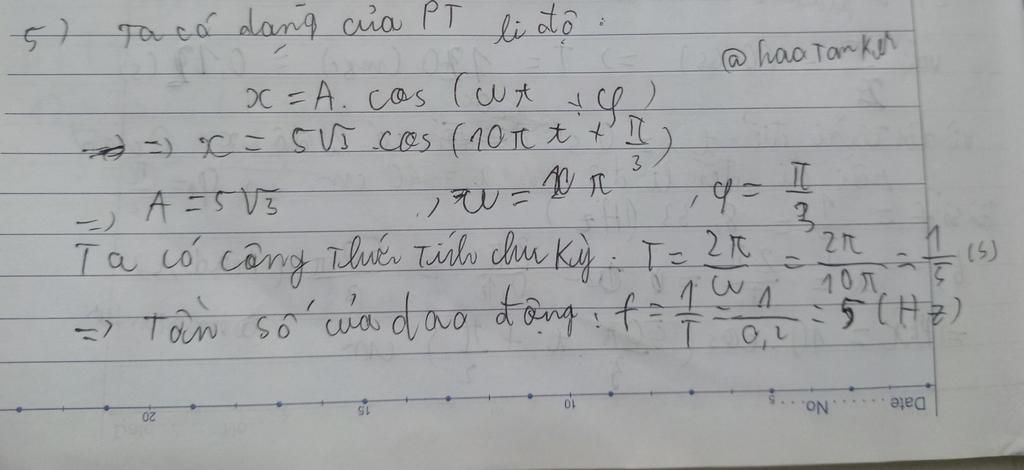 5) Ta có dạng của PT li độ:
@haotanker
x = A. cos (ωt + φ)
=> x = 5√3 .cos (10πt + π/3)
=> A = 5√3 , ω = 10π , φ = π/3
Ta có công thức tính chu kỳ: T = 2π/ω = 2π/10π = 1/5 (s)
=> Tần số của dao động: f = 1/T = 1/0,2 = 5 (Hz)
Date........ No.....5 10 15 20